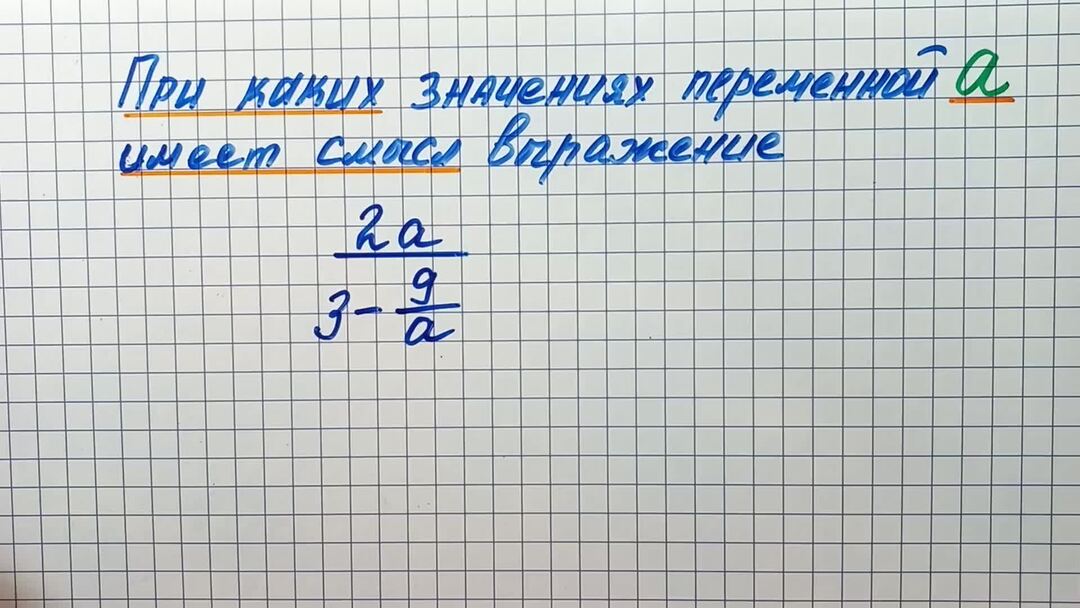 При каких значениях переменной a
имеет смысл выражение
2a
3 - 9
a